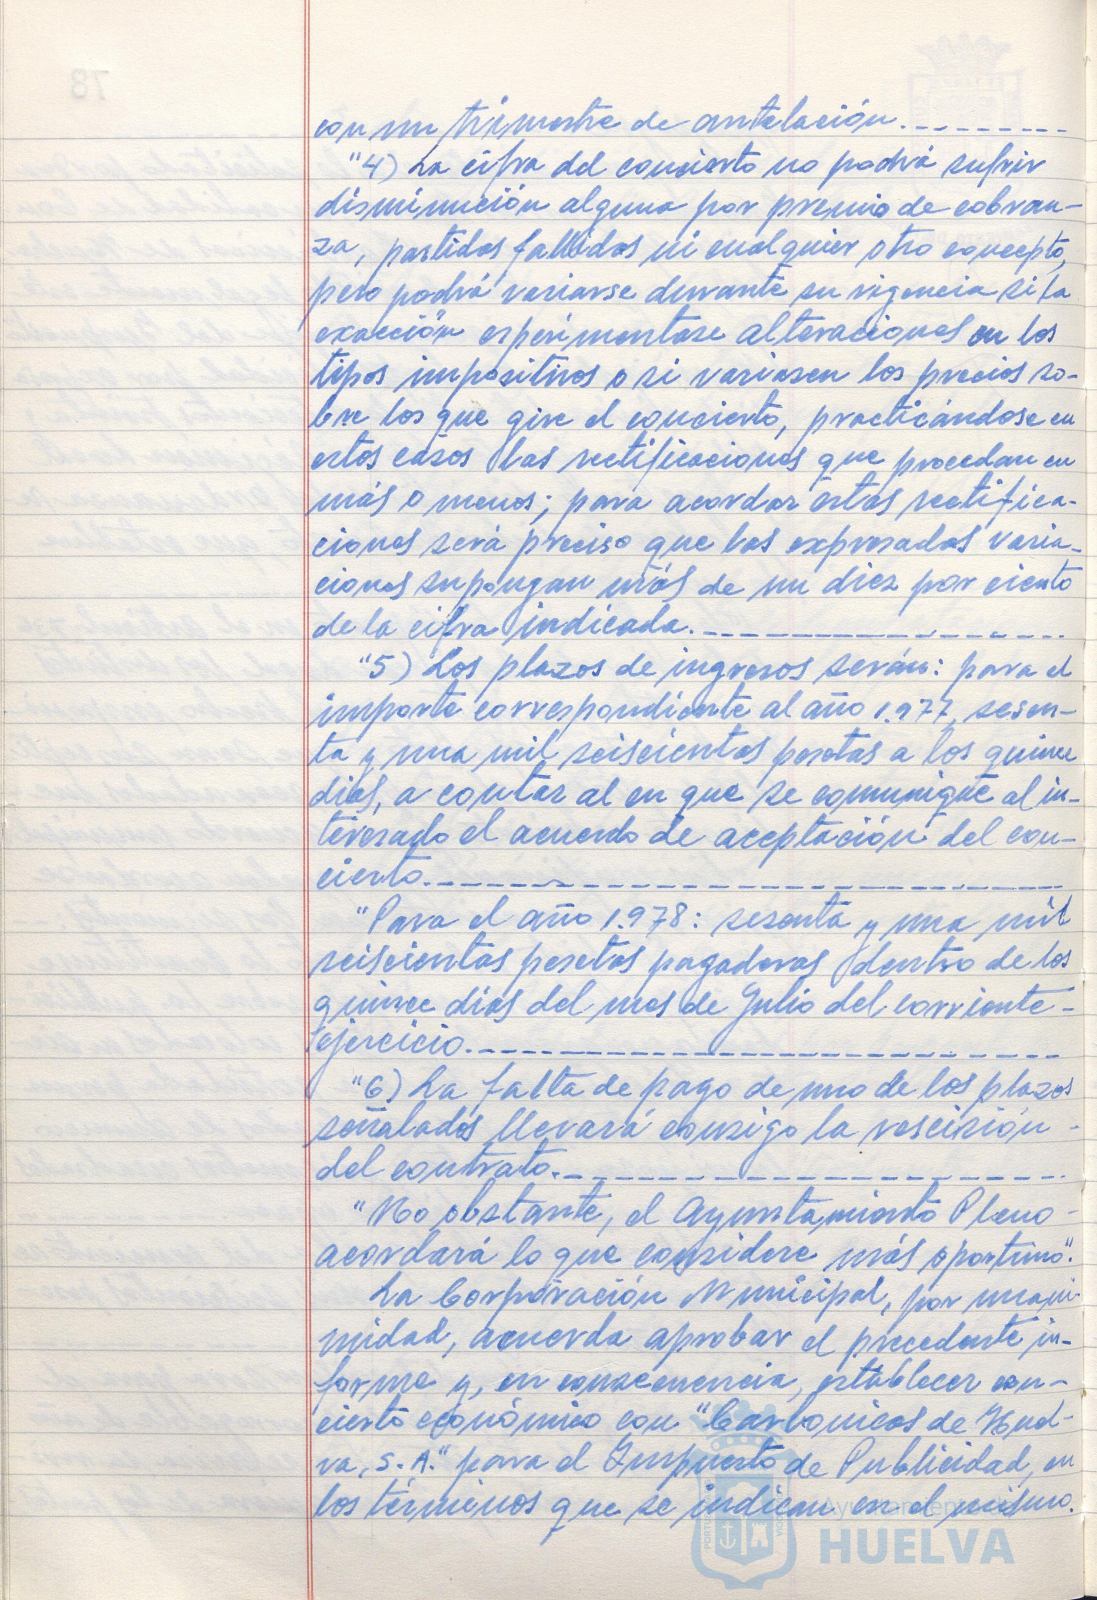 con un trimestre de antelación.---------
"4) La cifra del concierto no podrá sufrir
disminución alguna por premio de cobran-
za, partidas fallidas ni cualquier otro concepto,
pero podrá variarse durante su vigencia si la
exacción esperimentase alteraciones en los
tipos impositivos o si variasen los precios so-
bre los que gire el concierto, practicándose en
estos casos las rectificaciones que procedan en
más o menos; para acordar estas rectifica-
ciones será preciso que las expresadas varia-
ciones supongan más de un diez por ciento
de la cifra indicada.---------------
"5) Los plazos de ingresos serán: para el
importe correspondiente al año 1.977, sesen-
ta y una mil seiscientas pesetas a los quince
días, a contar al en que se comunique al in-
teresado el acuerdo de aceptación del con-
cierto.------------------------
"Para el año 1.978: sesenta y una mil
seiscientas pesetas pagaderas dentro de los
quince días del mes de Julio del corriente-
ejercicio.----------------------
"6) La falta de pago de uno de los plazos
señalados llevará consigo la rescisión-
del contrato.-------------------
"No obstante, el Ayuntamiento Pleno-
acordará lo que considere más oportuno".
La Corporación Municipal, por unani-
midad, acuerda aprobar el precedente in-
forme y, en consecuencia, establecer con-
cierto económico con "Carbonicas de Huel-
va, S.A." para el Impuesto de Publicidad, en
los términos que se indican en el mismo.
Ayuntamiento de
HUELVA
78